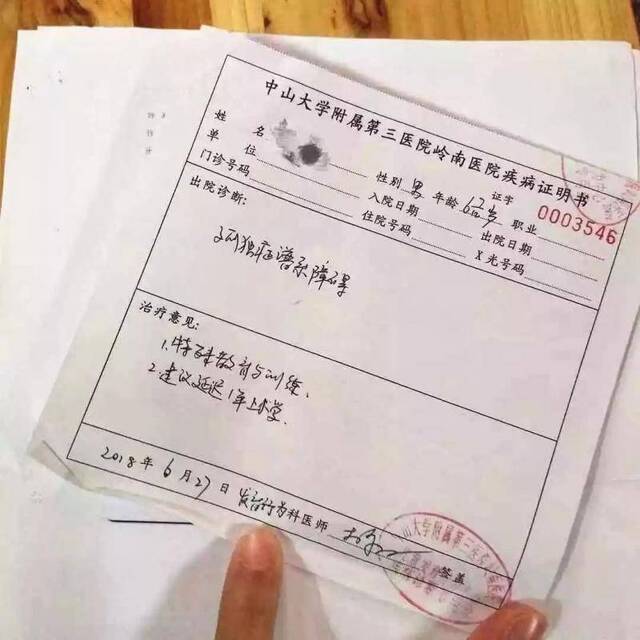 中山大学附属第三医院岭南医院疾病证明书
证字
0003546
姓 名
性别 男 年龄 6岁 职业
单 位
入院日期 出院日期
门诊号码 住院号码 X光号码
出院诊断:
孤独症谱系障碍
治疗意见:
1.特殊教育与训练.
2.建议延迟1年上小学.
2018 年 6 月 27 日 发育行为科医师 签盖
中山大学附属第三医院